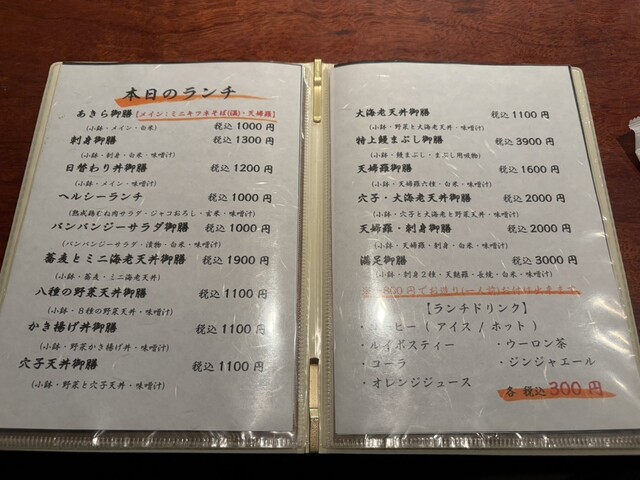 本日のランチ
あきら御膳 [メイン:ミニキツネそば(温)・天婦羅]
(小鉢・メイン・白米) 税込 1000 円
刺身御膳 税込 1300 円
(小鉢・刺身・白米・味噌汁)
日替わり丼御膳 税込 1200 円
(小鉢・メイン・味噌汁)
ヘルシーランチ 税込 1000 円
(熟成鶏むね肉サラダ・ジャコおろし・玄米・味噌汁)
バンバンジーサラダ御膳 税込 1000 円
(バンバンジーサラダ・漬物・白米・味噌汁)
蕎麦とミニ海老天丼御膳 税込 1900 円
(小鉢・蕎麦・ミニ海老天丼)
八種の野菜天丼御膳 税込 1100 円
(小鉢・8種の野菜天丼・味噌汁)
かき揚げ丼御膳 税込 1100 円
(小鉢・野菜かき揚げ丼・味噌汁)
穴子天丼御膳 税込 1100 円
(小鉢・野菜と穴子天丼・味噌汁)
大海老天丼御膳 税込 1100 円
(小鉢・野菜と大海老天丼・味噌汁)
特上鰻まぶし御膳 税込 3900 円
(小鉢・鰻まぶし・まぶし用吸物)
天婦羅御膳 税込 1600 円
(小鉢・天婦羅六種・白米・味噌汁)
穴子・大海老天丼御膳 税込 2000 円
(小鉢・穴子と大海老と野菜天丼・味噌汁)
天婦羅・刺身御膳 税込 2000 円
(小鉢・天婦羅・刺身・白米・味噌汁)
満足御膳 税込 3000 円
(小鉢・刺身2種・天麩羅・永焼・白米・味噌汁)
800円でお造り(一人前)お付け出来ます
【ランチドリンク】
・コーヒー ( アイス / ホット )
・ルイボスティー ・ウーロン茶
・コーラ ・ジンジャエール
・オレンジジュース
各 税込 300 円